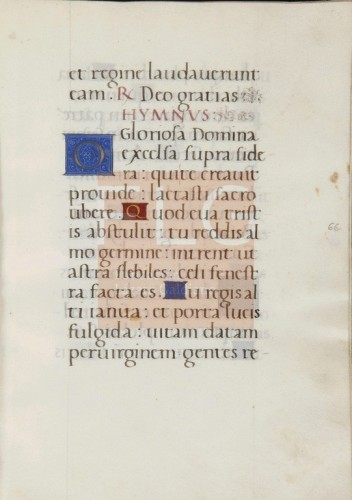 et regine laudauerunt
eam. ℟ Deo gratias
HYMNVS:
O Gloriosa Domina
excelsa supra side
ra: qui te creauit
prouide: lactasti sacro
ubere. Quod eua trist
is abstulit: tu reddis al
mo germine: intrent ut
astra flebiles: celi fenest
ra facta es. Tu regis al
ti ianua: et porta lucis
fulgida: uitam datam
per uirginem gentes re
66
FLG